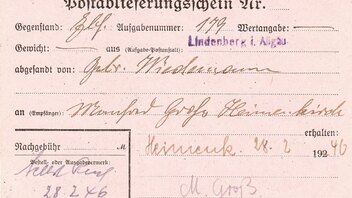 Postablieferungsschein Nr.
Gegenstand: Ebf. Aufgabenummer: 179 Wertangabe:
Gewicht: aus (Aufgabe-Postanstalt) Lindenberg i. Allgäu
abgesandt von: Gebr. Wiedemann
an (Empfänger) Manfred Groß Heimenkirch
erhalten:
Nachgebühr M
Heimenk. 28. 2 1946
Bestell- oder Ausgabevermerk:
28 2 46
M. Groß